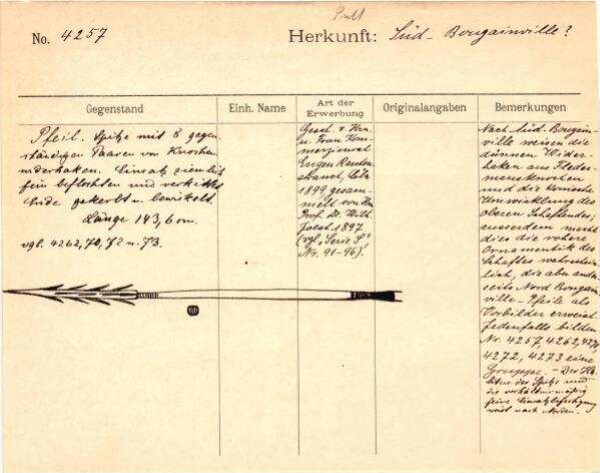 No. 4257
Herkunft: Süd-Bougainville?
Gegenstand
Einh. Name
Art der Erwerbung
Originalangaben
Bemerkungen
Pfeil. Spitze mit 8 gegen-
ständigen Paaren von Knochen-
widerhaken. Einsatz ziemlich
fein beflochten und verkittet.
Ende gekerbt u. bewickelt.
Länge 143,6 cm.
vgl. 4262, 70, 72 u. 73.
Gesch. v. Hrn.
u. Frau Kom-
merzienrat
Eugen Rauten-
strauch, Cöln
1899, gesam-
melt von Hrn.
Prof. Dr. Wilh.
Joest 1897
(vgl. Serie S
Nr. 91-96)!
Nach Süd-Bougain-
ville weisen die
dünnen Wider-
haken aus Fleder-
mausknochen
und die konische
Umwicklung des
oberen Schaftendes;
ausserdem macht
dies die rohere
Ornamentik des
Schaftes wahrschein-
lich, die aber ander-
seits Nord Bougain-
ville-Pfeile als
Vorbilder erweist.
Jedenfalls bilden
Nr. 4257, 4262, 4270,
4272, 4273 eine
Gruppe. - Der
der Spitze und
die verhältnismässig
feine Einsatzbefestigung
weist nach Norden.